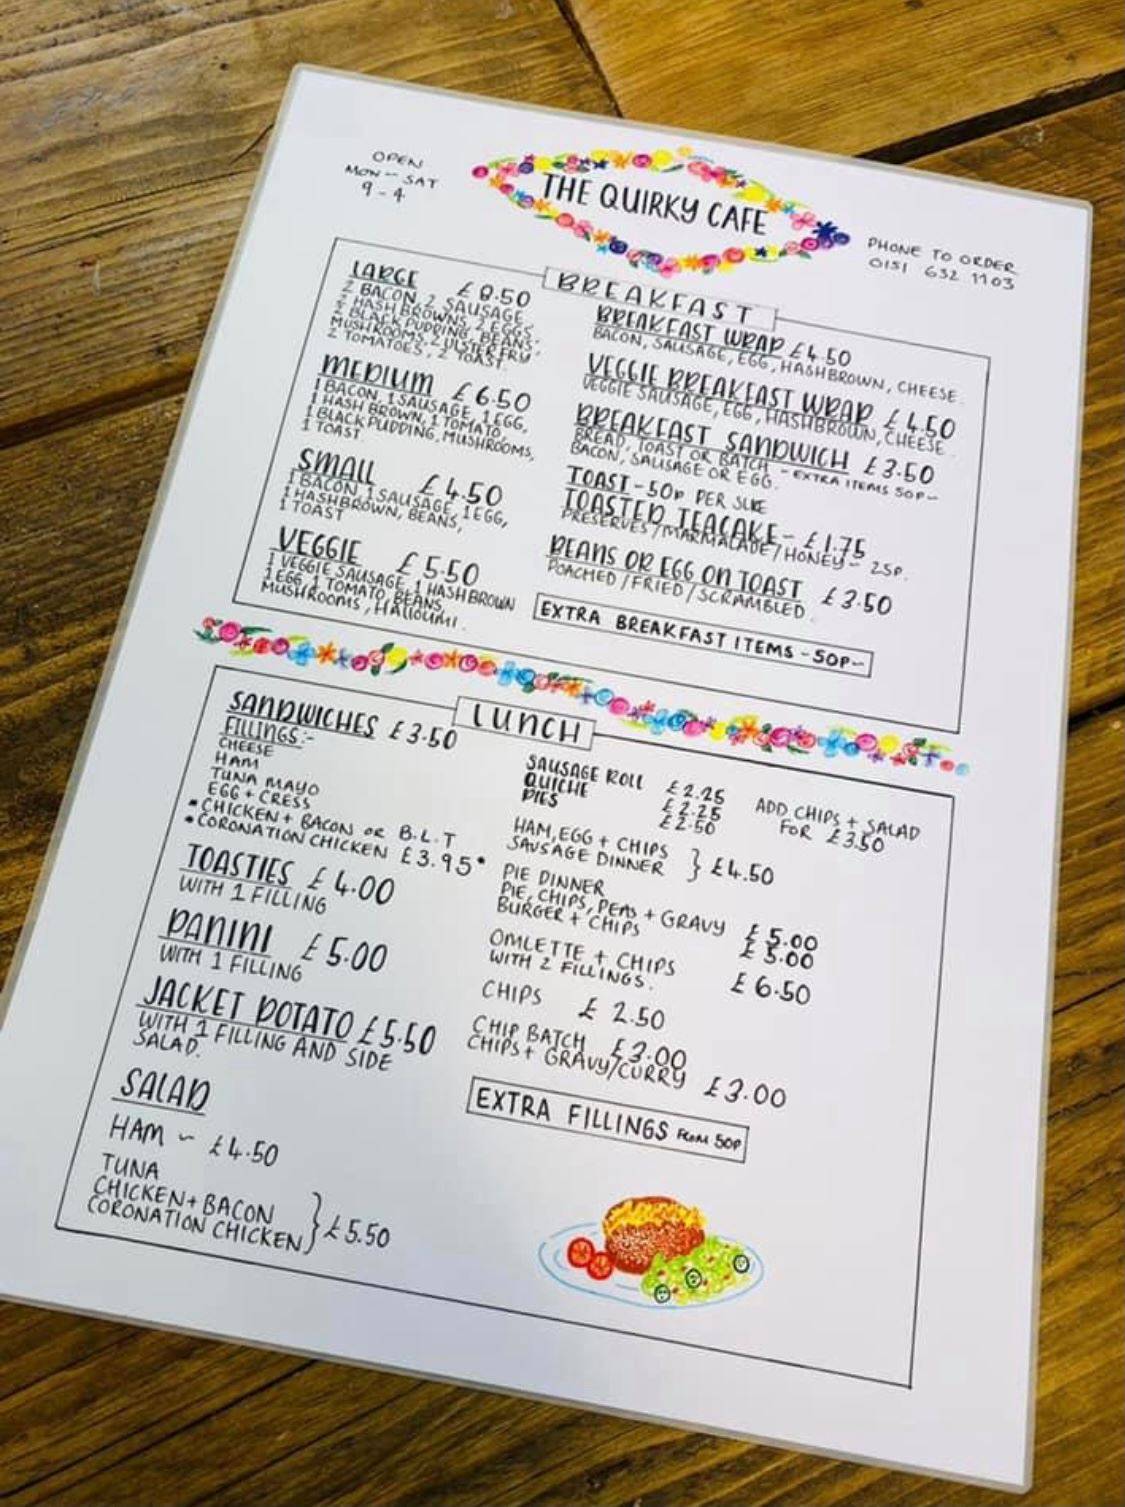 OPEN
MON - SAT
9 - 4
THE QUIRKY CAFE
PHONE TO ORDER
0151 632 1103
BREAKFAST
LARGE £8.50
2 BACON, 2 SAUSAGE,
2 HASH BROWNS, 2 EGGS,
2 BLACK PUDDING, BEANS,
MUSHROOMS, 2 ULSTER FRY,
2 TOMATOES, 2 TOAST.
MEDIUM £6.50
1 BACON, 1 SAUSAGE, 1 EGG,
1 HASH BROWN, 1 TOMATO,
1 BLACK PUDDING, MUSHROOMS,
1 TOAST
SMALL £4.50
1 BACON, 1 SAUSAGE, 1 EGG,
1 HASHBROWN, BEANS,
1 TOAST
VEGGIE £5.50
1 VEGGIE SAUSAGE, 1 HASH BROWN
1 EGG, 1 TOMATO, BEANS,
MUSHROOMS, HALLOUMI.
BREAKFAST WRAP £4.50
BACON, SAUSAGE, EGG, HASHBROWN, CHEESE.
VEGGIE BREAKFAST WRAP £4.50
VEGGIE SAUSAGE, EGG, HASHBROWN, CHEESE.
BREAKFAST SANDWICH £3.50
BREAD, TOAST OR BATCH - EXTRA ITEMS 50P-
BACON, SAUSAGE OR EGG.
TOAST - 50P PER SLICE
TOASTED TEACAKE - £1.75
PRESERVES / MARMALADE / HONEY - 25P.
BEANS OR EGG ON TOAST £3.50
POACHED / FRIED / SCRAMBLED.
EXTRA BREAKFAST ITEMS - 50P-
LUNCH
SANDWICHES £3.50
FILLINGS:-
CHEESE
HAM
TUNA MAYO
EGG + CRESS
• CHICKEN + BACON OR B.L.T
• CORONATION CHICKEN £3.95 •
TOASTIES £4.00
WITH 1 FILLING
PANINI £5.00
WITH 1 FILLING
JACKET POTATO £5.50
WITH 1 FILLING AND SIDE
SALAD.
SALAD
HAM - £4.50
TUNA
CHICKEN + BACON
CORONATION CHICKEN } £5.50
SAUSAGE ROLL £2.25
QUICHE £2.25
PIES £2.50
ADD CHIPS + SALAD
FOR £3.50
HAM, EGG + CHIPS
SAUSAGE DINNER } £4.50
PIE DINNER
PIE, CHIPS, PEAS + GRAVY £5.00
BURGER + CHIPS £5.00
OMLETTE + CHIPS
WITH 2 FILLINGS. £6.50
CHIPS £2.50
CHIP BATCH £3.00
CHIPS + GRAVY/CURRY £3.00
EXTRA FILLINGS FROM 50P